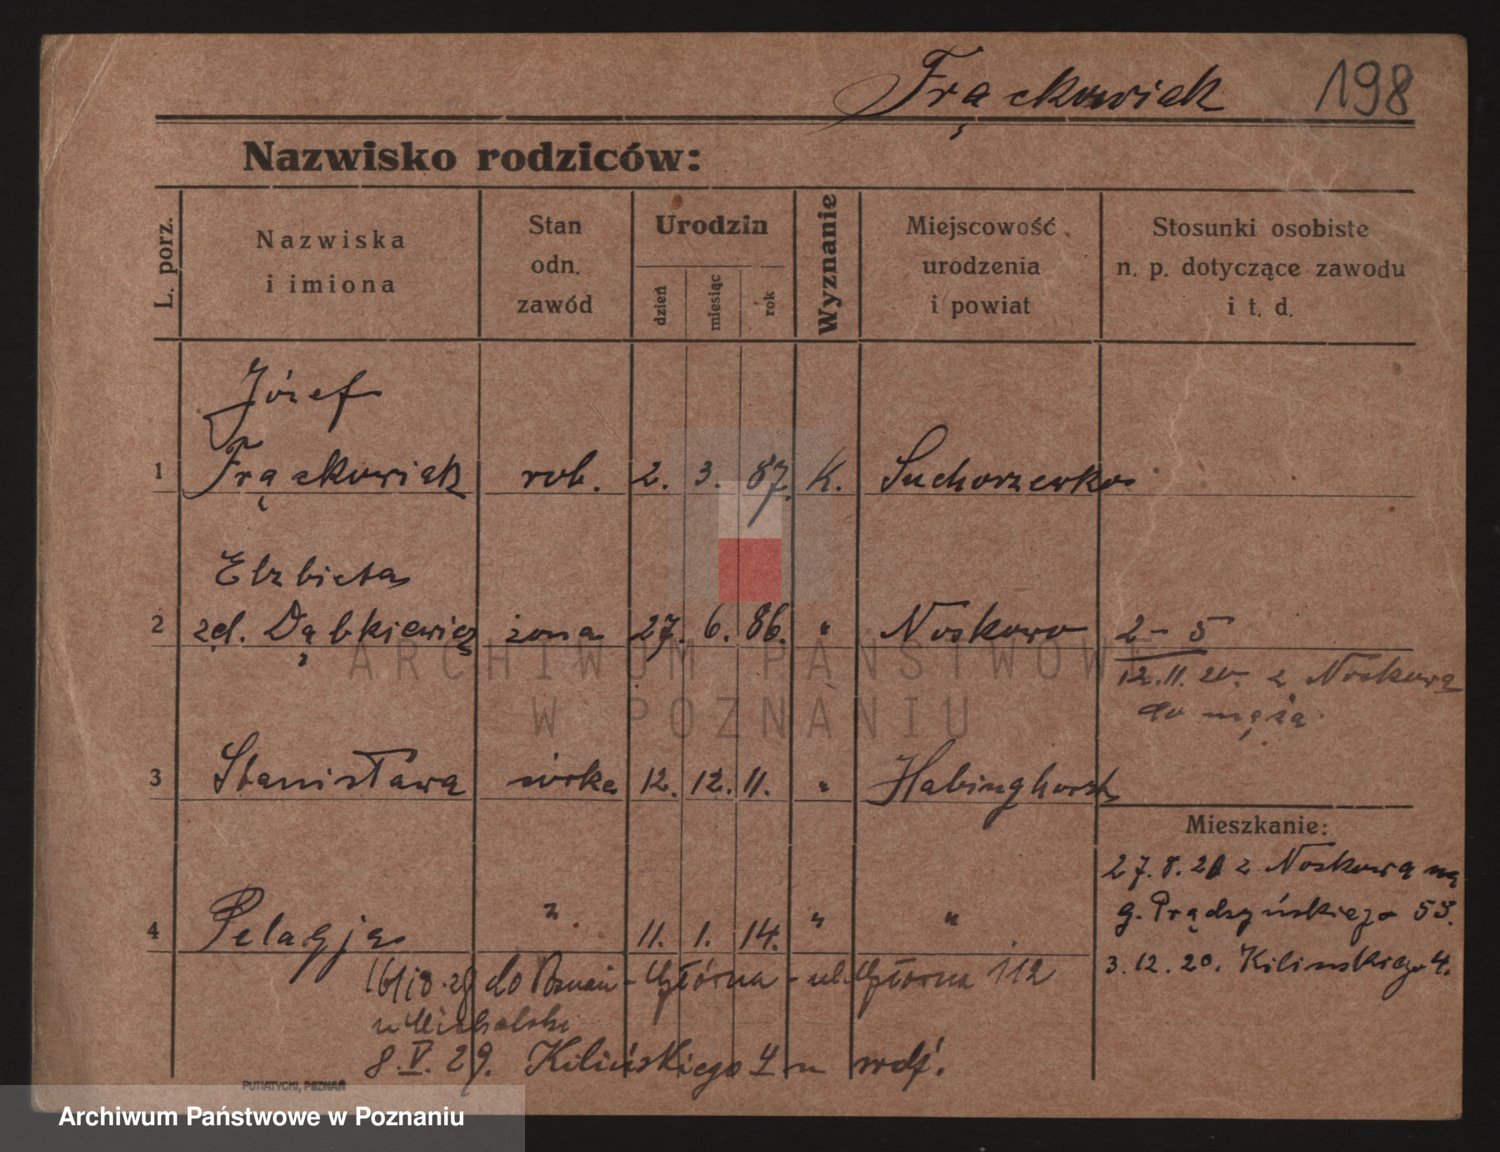 Frąckowiak 198
Nazwisko rodziców:
L. porz.
Nazwiska
i imiona
Stan
odn.
zawód
Urodzin
dzień
miesiąc
rok
Wyznanie
Miejscowość
urodzenia
i powiat
Stosunki osobiste
n. p. dotyczące zawodu
i t. d.
Józef
1 Frąckowiak rob. 2. 3. 87. K. Suchorzewko
Elzbieta
2 zd. Dąbkiewicz żona 27. 6. 86. " Noskowo 2 - 5
12.11.20. z Noskowa
do męża
3 Stanisława córka 12. 12. 11. " Habinghorst
Mieszkanie:
27.8.21 z Noskowa na
g. Prądzyńskiego 55.
4 Pelagja " 11. 1. 14. " "
3.12.20. Kilinskiego 4.
do Poznań - Główna - ul. Główna 112
u Michalski
8.V.29. Kilińskiego 4 u rodź.
PUTIATYCKI, POZNAŃ
ARCHIWUM PAŃSTWOWE
W POZNANIU
Archiwum Państwowe w Poznaniu